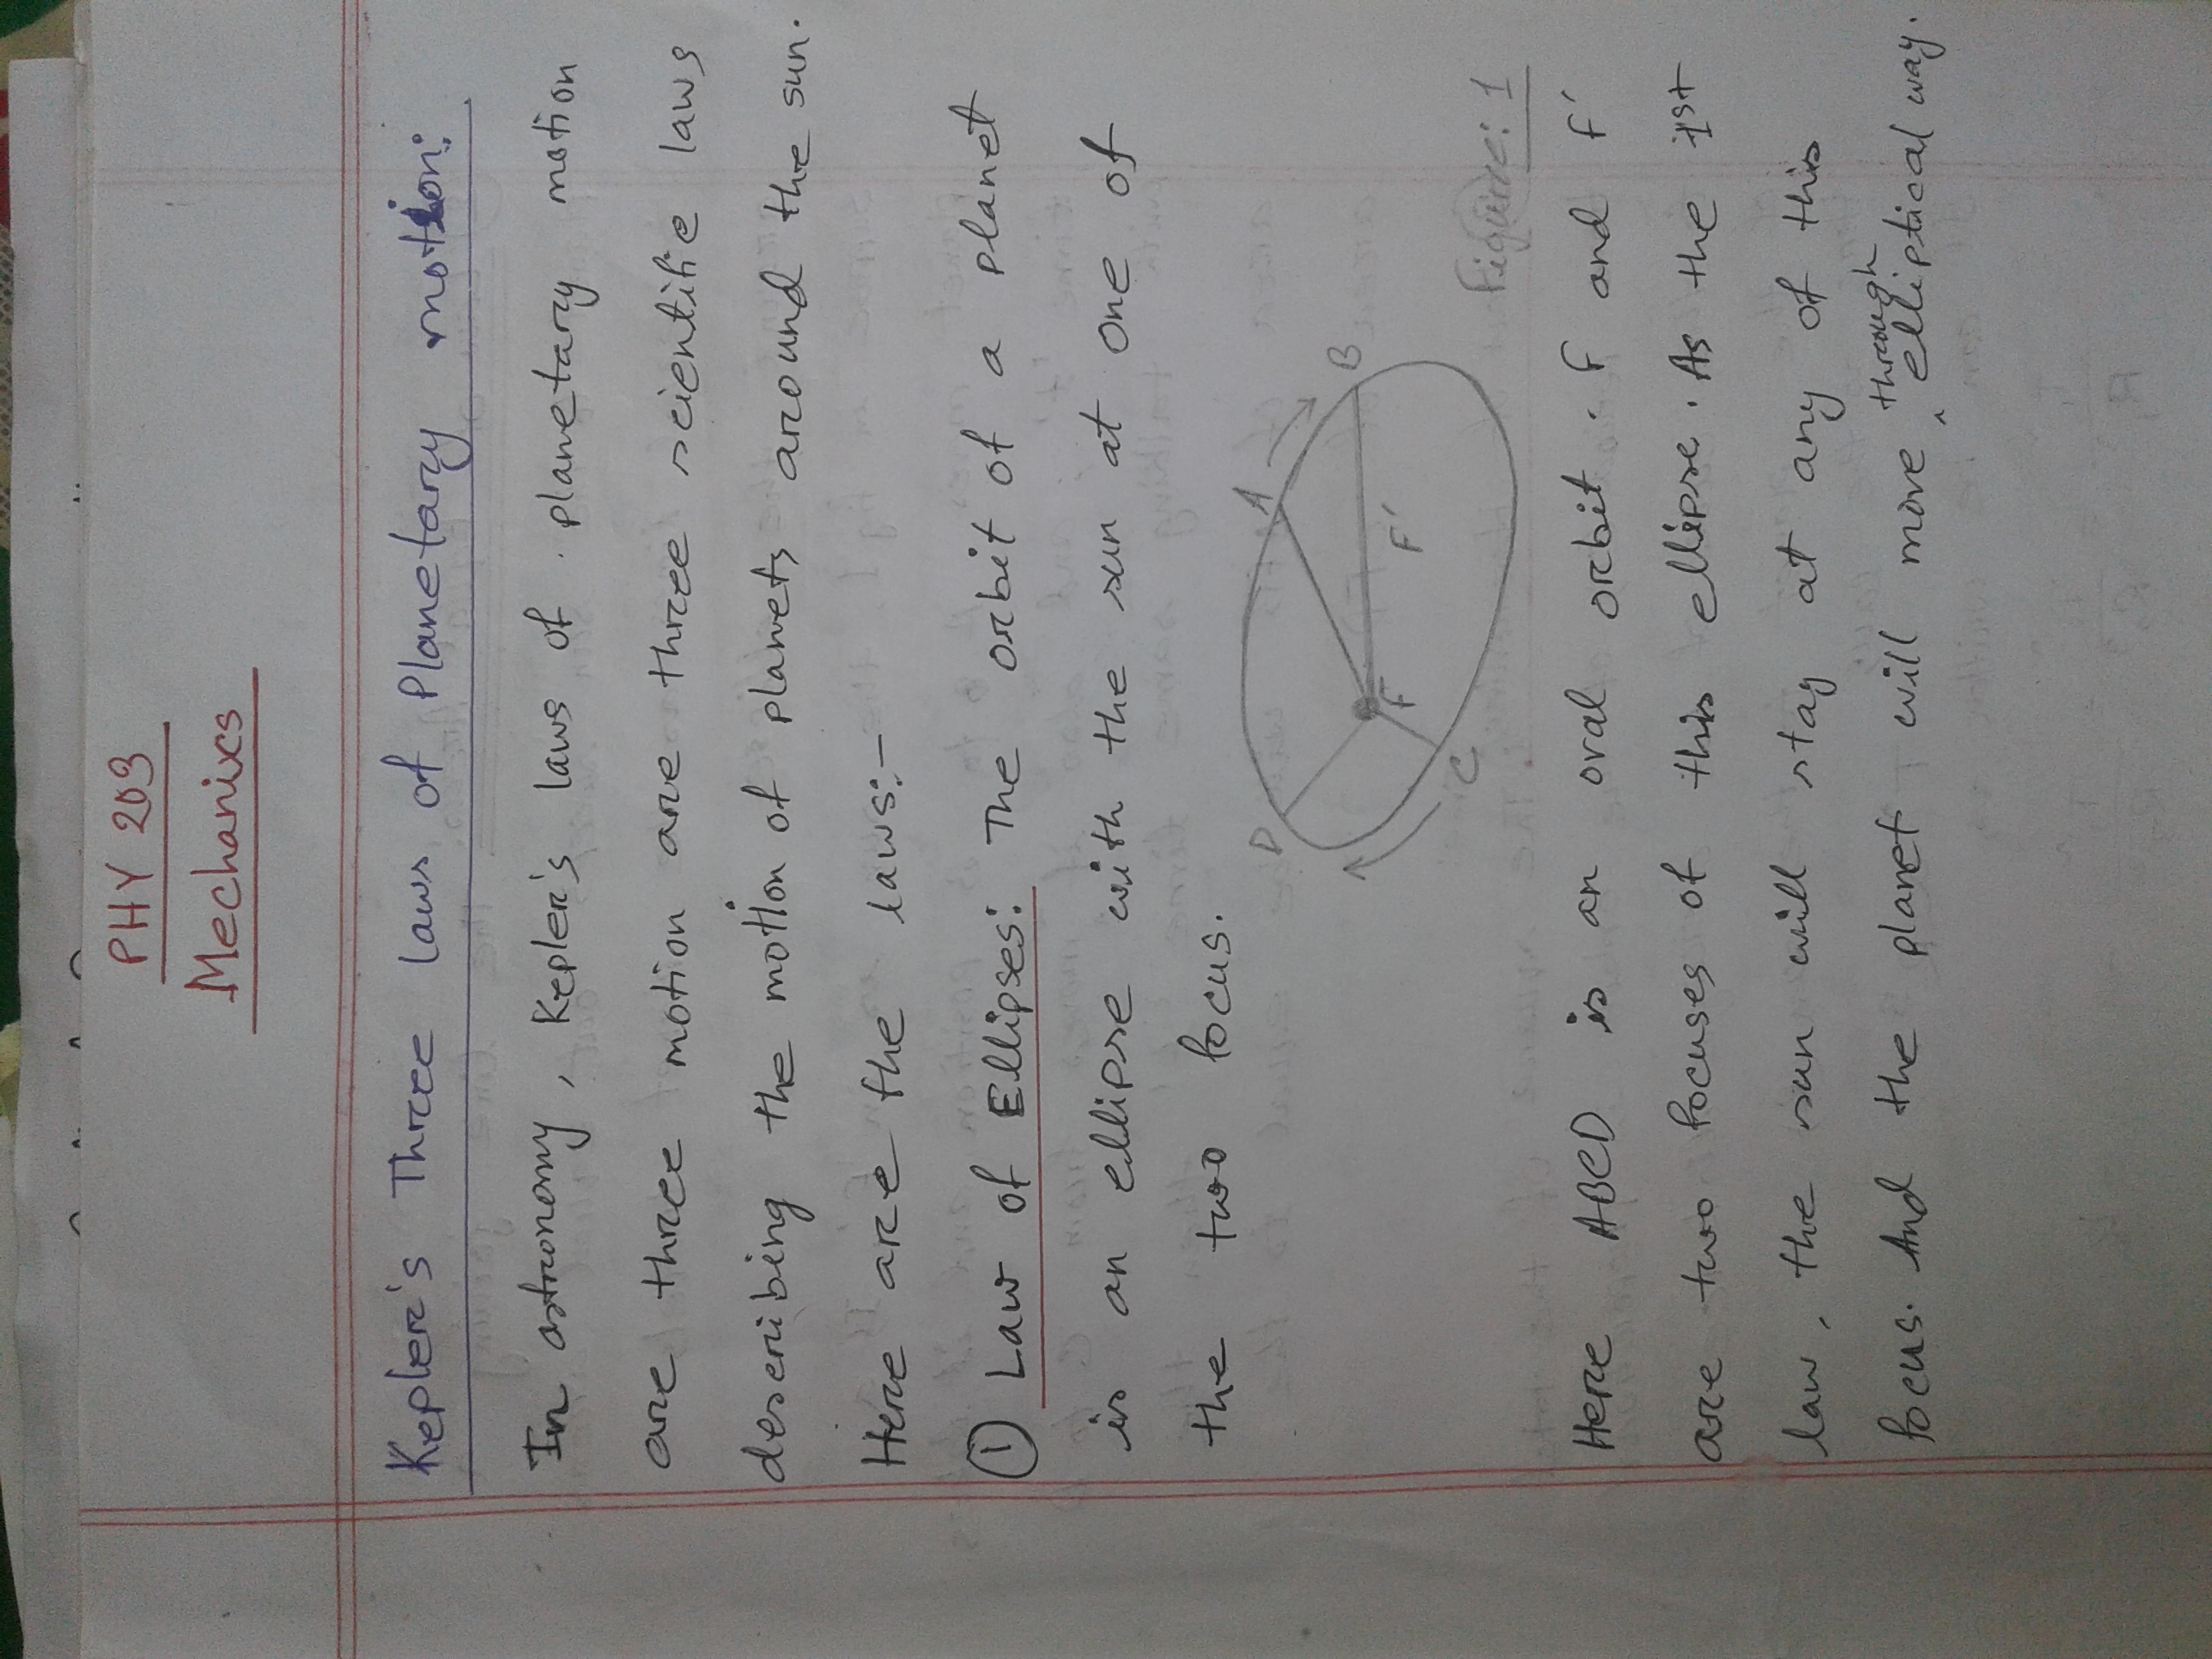 PHY 203
Mechanixs
Kepler's Three laws of Planetary motion:
In astronomy, Kepler's laws of planetary motion
are three motion are three scientific laws
describing the motion of planets around the sun.
Here are the laws:-
① Law of Ellipses: The orbit of a planet
is an ellipse with the sun at one of
the two focus.
D A
B
F F′
C
Figure: 1
Here ABCD is an oval orbit. F and F′
are two focuses of this ellipse. As the 1st
law, the sun will stay at any of this
focus. And the planet will move through elliptical way.